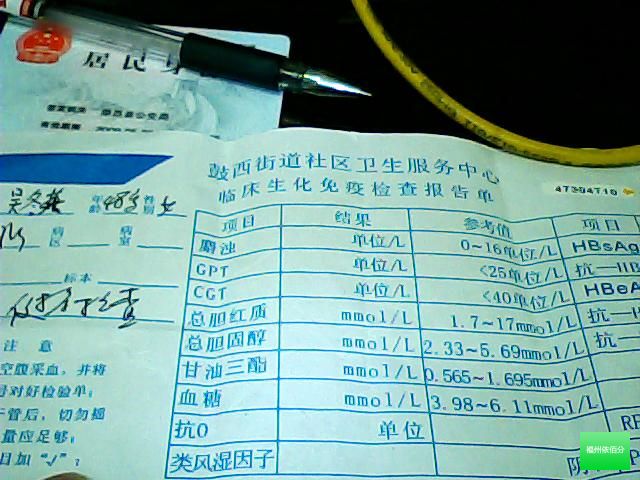 居民身
鼓西街道社区卫生服务中心
临床生化免疫检查报告单
47304710
年龄 48岁 性别 女
病区 病室
标本
注 意
空腹采血，并将
对好检验单；
管后，切勿摇
量应足够；
加“√”；
项目 结果 参考值 项目
麝浊 单位/L 0~16单位/L HBsAg
GPT 单位/L <25单位/L 抗—HB
CGT 单位/L <40单位/L HBeA
总胆红质 mmol/L 1.7~17mmol/L 抗—H
总胆固醇 mmol/L 2.33~5.69mmol/L 抗—
甘油三酯 mmol/L 0.565~1.695mmol/L
血糖 mmol/L 3.98~6.11mmol/L
抗O 单位
类风湿因子
福州依佰分